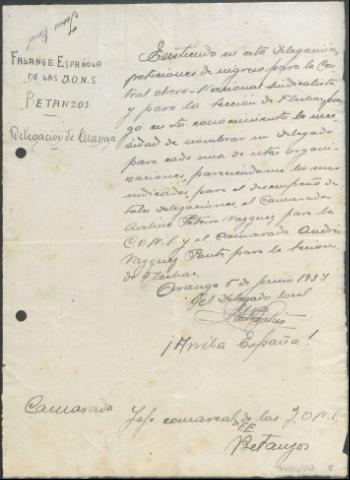 FALANGE ESPAÑOLA
DE LAS J.O.N.S
BETANZOS
Delegación de Oranza
Existiendo en esta delegación
peticiones de ingreso para la Cen
tral obrero-Nacional Sindicalista
y para la Seccion de Flechas, pon
go en tu conocimiento la nece
sidad de nombrar un delegado
para cada una de estas organi
zaciones, pareciendome los mas
indicados, para el desempeño de
tales delegaciones, el Camarada
Avelino Vazquez para la
C.O.N.S y el camarada Andrés
Vazquez para la Seccion
de Flechas.
5 de junio 1937
El delegado local
¡Arriba España!
Camarada Jefe comarcal de F.E. de las J.O.N.S.
Betanzos